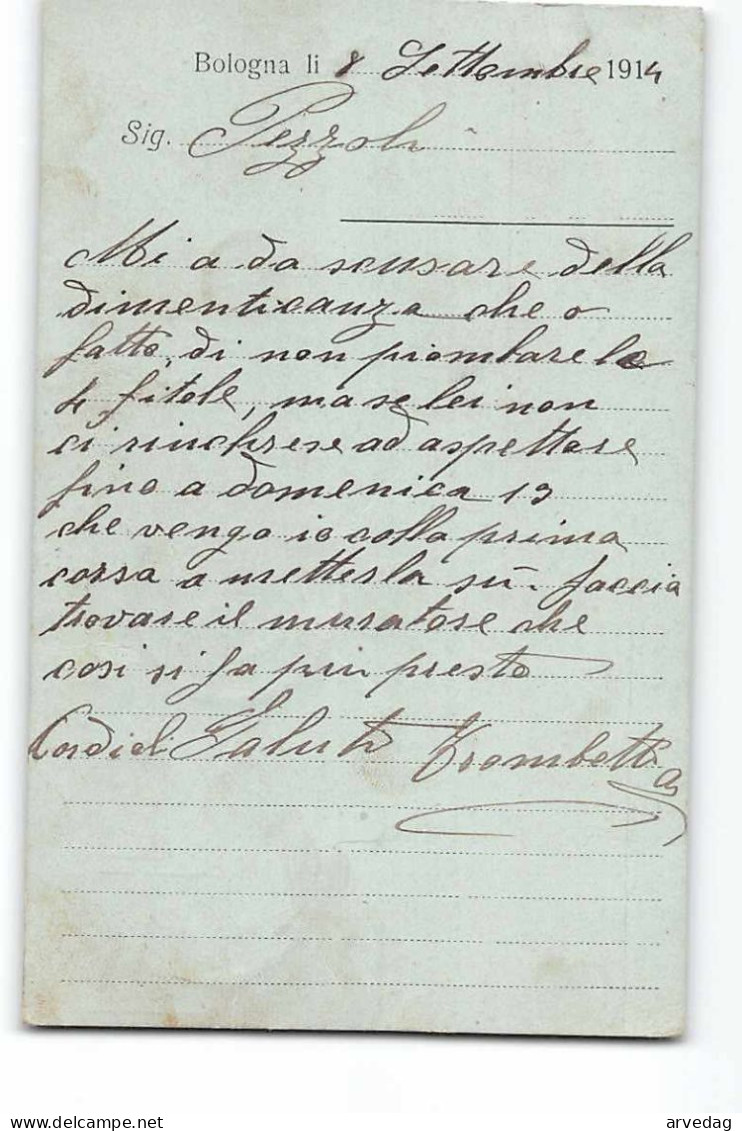 Bologna li 8 Settembre 1914
Sig. Pezzoli
Mi a da scusare della
dimenticanza che o
fatto, di non piombare le
4 fitole, ma se lei non
ci rinchrese ad aspettare
fino a domenica 13
che vengo io colla prima
corsa a metterla sù. faccia
trovare il muratore che
cosi si fa piu presto
Cordiali Saluti Trombetta
delcampe.net
arvedag